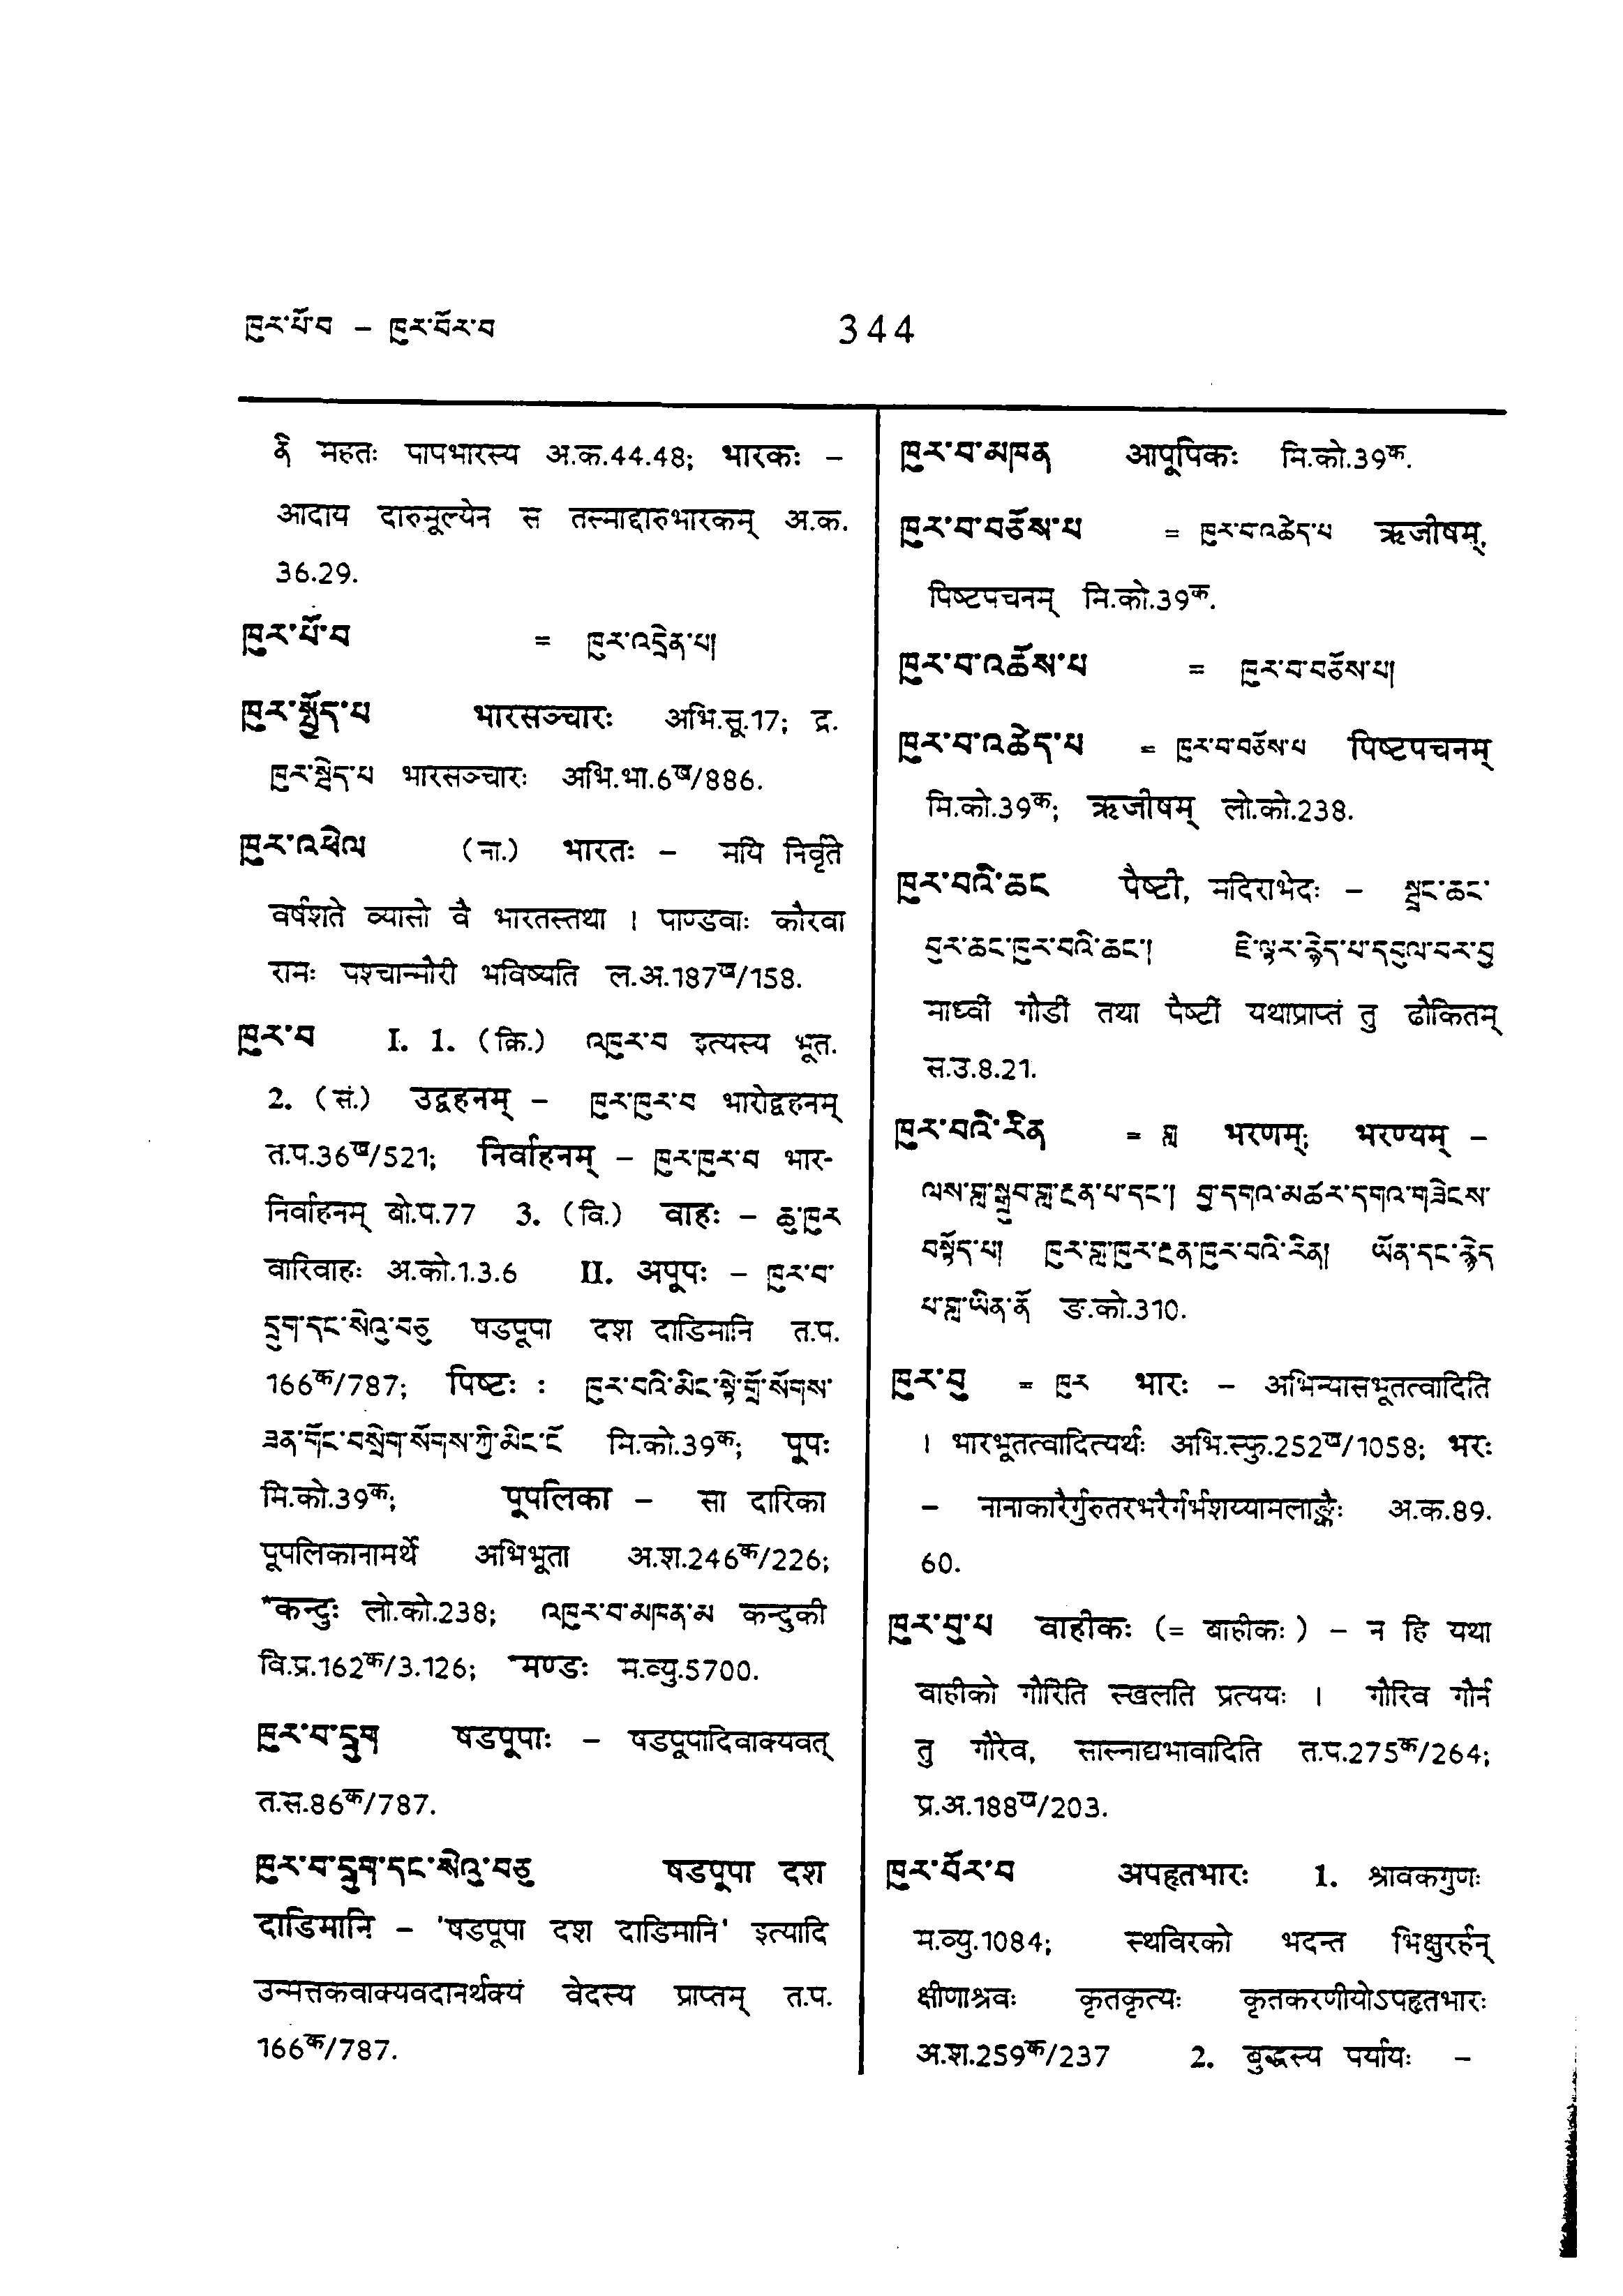 ཁུར་པོ་བ – ཁུར་བོར་བ 344
ནི महतः पापभारस्य अ.क.44.48; भारकः –
आदाय दारुमूल्येन स तस्माद्दारुभारकम् अ.क.
36.29.
ཁུར་པོ་བ = ཁུར་འདྲེན་པ།
ཁུར་སྤྱོད་པ भारसञ्चारः अभि.सू.17; द्र.
ཁུར་སྤྲེད་པ भारसञ्चारः अभि.भा.6ख/886.
ཁུར་འཕེལ (ना.) भारतः – मयि निर्वृते
वर्षशते व्यासो वै भारतस्तथा । पाण्डवाः कौरवा
रामः पश्चान्मौरी भविष्यति ल.अ.187ख/158.
ཁུར་བ I. 1. (क्रि.) འཁུར་བ इत्यस्य भूत.
2. (सं.) उद्वहनम् – ཁུར་ཁུར་བ भारोद्वहनम्
त.प.36ख/521; निर्वाहनम् – ཁུར་ཁུར་བ भार-
निर्वाहनम् बो.प.77 3. (वि.) वाहः – ཆུ་ཁུར
वारिवाहः अ.को.1.3.6 II. अपूपः – ཁུར་བ་
དྲུག་དང་སེའུ་བཅུ षडपूपा दश दाडिमानि त.प.
166क/787; पिष्टः : ཁུར་བའི་མིང་སྟེ་གྲོ་སོགས་
ཟན་གོང་བསྲེག་སོགས་ཀྱི་མིང་ངོ मि.को.39क; पूपः
मि.को.39क; पूपलिका – सा दारिका
पूपलिकानामर्थे अभिभूता अ.श.246क/226;
*कन्दुः लो.को.238; འཁུར་བ་མཁན་མ कन्दुकी
वि.प्र.162क/3.126; *मण्डः म.व्यु.5700.
ཁུར་བ་དྲུག षडपूपाः – षडपूपादिवाक्यवत्
त.स.86क/787.
ཁུར་བ་དྲུག་དང་སེའུ་བཅུ षडपूपा दश
दाडिमानि – 'षडपूपा दश दाडिमानि' इत्यादि
उन्मत्तकवाक्यवदानर्थक्यं वेदस्य प्राप्तम् त.प.
166क/787.
ཁུར་བ་མཁན आपूपिकः मि.को.39क.
ཁུར་བ་བཅོས་པ = ཁུར་བ་འཚེད་པ ऋजीषम्,
पिष्टपचनम् मि.को.39क.
ཁུར་བ་འཚོས་པ = ཁུར་བ་བཅོས་པ།
ཁུར་བ་འཚེད་པ = ཁུར་བ་བཅོས་པ पिष्टपचनम्
मि.को.39क; ऋजीषम् लो.को.238.
ཁུར་བའི་ཆང पैष्टी, मदिराभेदः – སྦྲང་ཆང་
བུར་ཆང་ཁུར་བའི་ཆང་། ཇི་ལྟར་རྙེད་པ་དབུལ་བར་བྱ
माध्वीं गौडीं तथा पैष्टीं यथाप्राप्तं तु ढौकितम्
स.उ.8.21.
ཁུར་བའི་རིན = གླ भरणम्; भरण्यम् –
ལས་གླ་སྒྲུབ་གླ་རྔན་པ་དང་། བྱ་དགའ་མཚར་དགའ་གཟེངས་
བསྟོད་པ། ཁུར་གླ་ཁུར་རྔན་ཁུར་བའི་རིན། ཡོན་དང་རྙེད
པ་གླ་ཡིན་ནོ ङ.को.310.
ཁུར་བུ = ཁུར भारः – अभिन्यासभूतत्वादिति
। भारभूतत्वादित्यर्थः अभि.स्फु.252ख/1058; भरः
– नानाकारैर्गुरुतरभरैर्गर्भशय्यामलाङ्कैः अ.क.89.
60.
ཁུར་བུ་པ वाहीकः (= बाहीकः) – न हि यथा
वाहीको गौरिति स्खलति प्रत्ययः । गौरिव गौर्न
तु गौरेव, सास्नाद्यभावादिति त.प.275क/264;
प्र.अ.188ख/203.
ཁུར་བོར་བ अपहृतभारः 1. श्रावकगुणः
म.व्यु.1084; स्थविरको भदन्त भिक्षुरर्हन्
क्षीणाश्रवः कृतकृत्यः कृतकरणीयोऽपहृतभारः
अ.श.259क/237 2. बुद्धस्य पर्यायः –